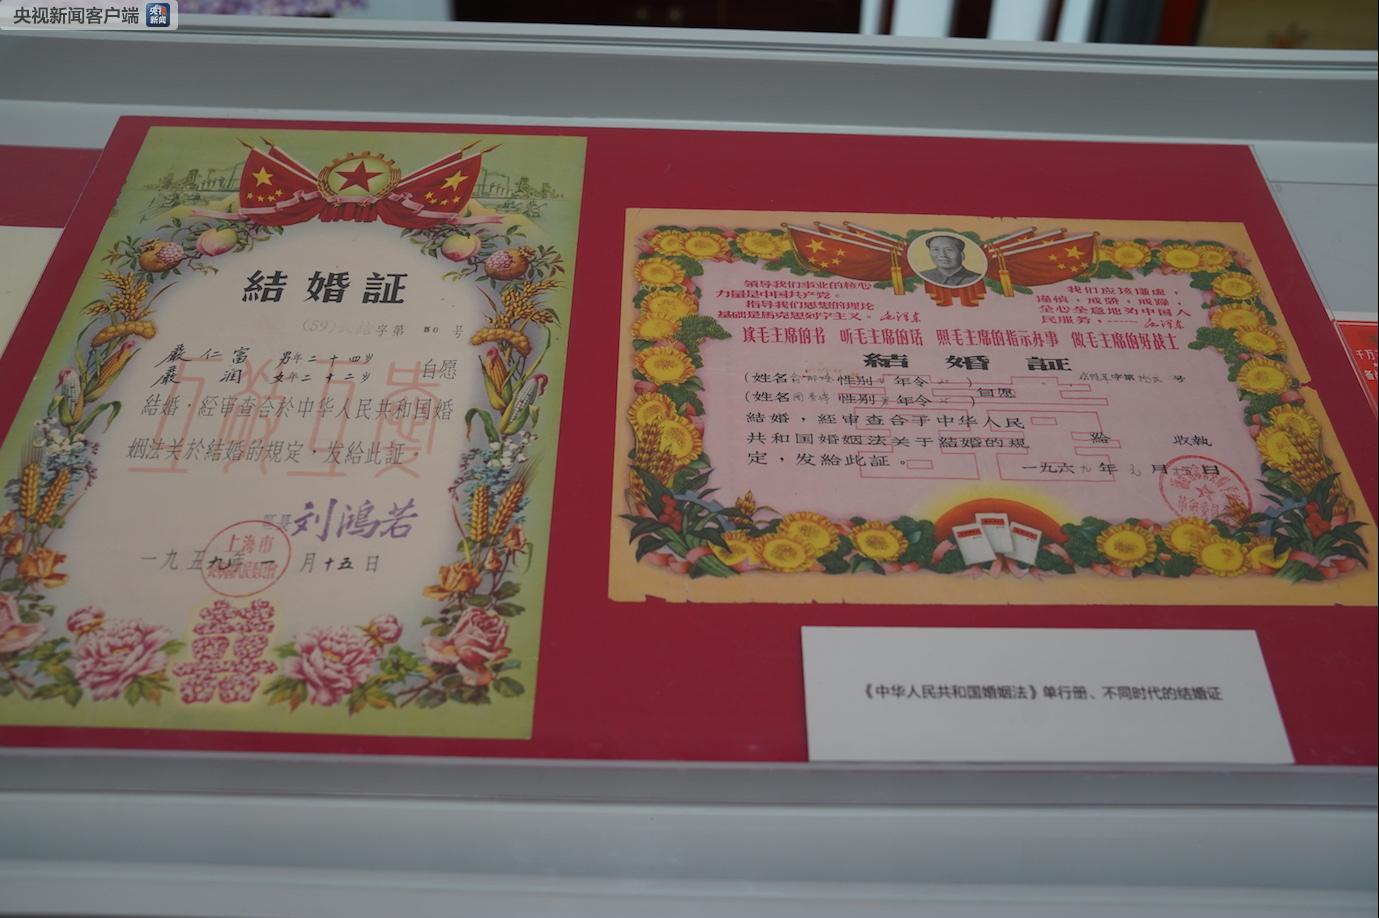 央视新闻客户端
結婚証
(59)
字第 80 号
嚴仁富 男年二十四岁
嚴润 女年二十二岁
自愿
結婚，經审查合於中华人民共和国婚
姻法关於結婚的規定，发給此証。
区長 刘鴻若
上海市
一九五九年 月十五日
領导我们事业的核心
力量是中国共产党。
指导我们思想的理论
基础是馬克思列宁主义。
毛泽东
我们应该謙虚，
謹慎，戒骄，戒躁，
全心全意地为中国人
民服务，……
毛泽东
读毛主席的书 听毛主席的话 照毛主席的指示办事 做毛主席的好战士
結婚証
(姓名 性别 年令 )
字第 号
(姓名 性别 年令 )
自愿
結婚，經审查合于中华人民
共和国婚姻法关于結婚的规
定，发給此証。
給 收执
一九六九年元月 日
《中华人民共和国婚姻法》单行册、不同时代的结婚证